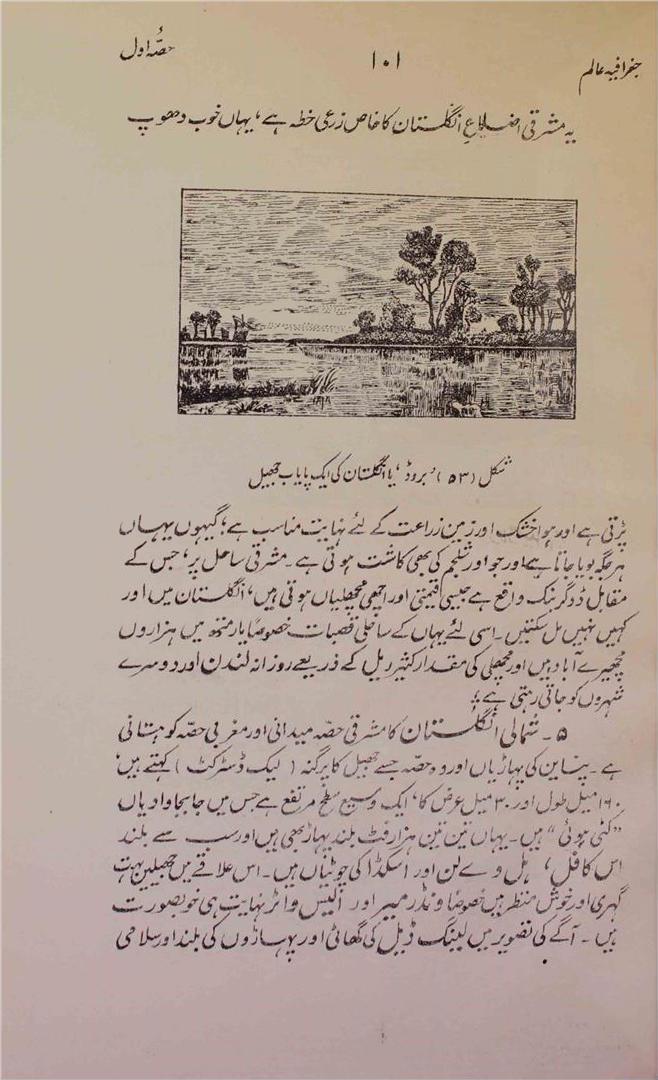 جغرافیہ عالم
۱۰۱
حصّہ اول
یہ مشرقی اضلاعِ انگلستان کا خاص زرعی خطہ ہے، یہاں خوب دھوپ
شکل (۵۳) ’بروڈ‘ یا انگلستان کی ایک پایاب جھیل
پڑتی ہے اور ہوا خشک اور زمین زراعت کے لئے نہایت مناسب ہے؛ گیہوں یہاں
ہر جگہ بویا جاتا ہے اور جو اور شلجم کی بھی کاشت ہوتی ہے۔ مشرقی ساحل پر، جس کے
مقابل ڈوگر بنک واقع ہے جیسی قیمتی اور اچھی مچھلیاں ہوتی ہیں، انگلستان میں اور
کہیں نہیں مل سکتیں۔ اسی لئے یہاں کے ساحلی قصبات خصوصاً یارمتھ میں ہزاروں
مچھیرے آباد ہیں اور مچھلی کی مقدار کثیر ریل کے ذریعے روزانہ لندن اور دوسرے
شہروں کو جاتی رہتی ہے؛
۵۔ شمالی انگلستان کا مشرقی حصّہ میدانی اور مغربی حصّہ کوہستانی
ہے۔ پیناین کی پہاڑیاں اور وہ حصّہ جسے جھیل کا پرگنہ (لیک ڈسٹرکٹ) کہتے ہیں
۱۶۰ میل طول اور ۳۰ میل عرض کا، ایک وسیع سطح مرتفع ہے جس میں جا بجا وادیاں
”کٹی ہوئی“ ہیں۔ یہاں تین تین ہزار فٹ بلند پہاڑ بھی ہیں اور سب سے بلند
اس کافل، ہل وے لن اور اسکڈا کی چوٹیاں ہیں۔ اس علاقے میں جھیلیں بہت
گہری اور خوش منظر ہیں خصوصاً ونڈرمیر اور الیس واٹر نہایت ہی خوبصورت
ہیں۔ آگے کی تصویر میں لینگ ڈیل کی گھاٹی اور پہاڑوں کی بلند اور سلامی